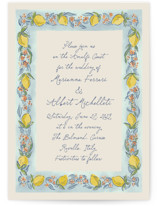 Please join us
on the Amalfi Coast
for the wedding of
Marianna Ferrara
&
Albert Michellote
Saturday, June 22, 
it's in the evening
The Belmond, Caruso
Ravello, Italy
Festivities to follow